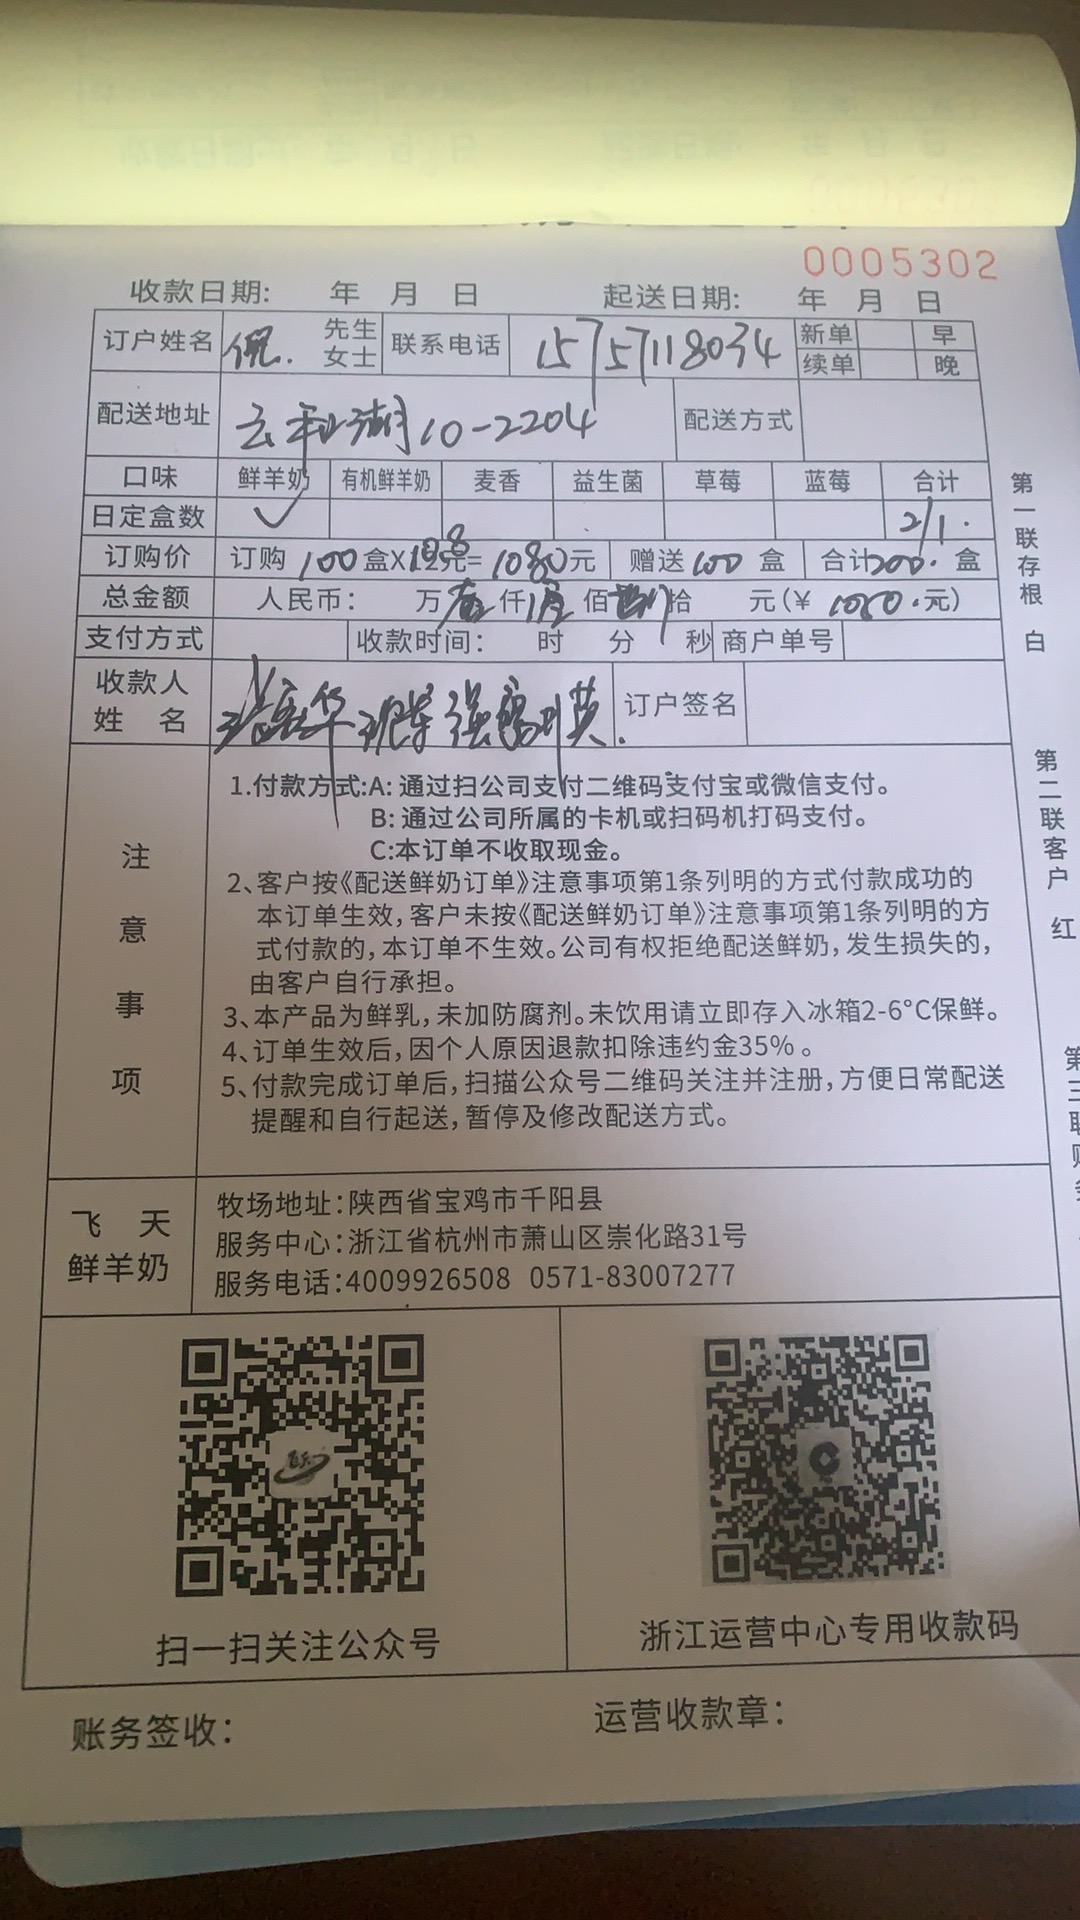 0005302
收款日期: 年 月 日 起送日期: 年 月 日
订户姓名 倪. 先生 女士 联系电话 15757118034 新单 续单 早 晚
配送地址 10-2204 配送方式
口味 鲜羊奶 有机鲜羊奶 麦香 益生菌 草莓 蓝莓 合计
日定盒数 ✓ 2/1.
订购价 订购 100 盒X10.8元= 1080元 赠送 100 盒 合计200. 盒
总金额 人民币: 万 仟 佰 拾 元(¥ 1080.元)
支付方式 收款时间: 时 分 秒 商户单号
收款人姓名 订户签名
注意事项
1.付款方式:A: 通过扫公司支付二维码支付宝或微信支付。
B: 通过公司所属的卡机或扫码机打码支付。
C:本订单不收取现金。
2、客户按《配送鲜奶订单》注意事项第1条列明的方式付款成功的
本订单生效,客户未按《配送鲜奶订单》注意事项第1条列明的方
式付款的,本订单不生效。公司有权拒绝配送鲜奶,发生损失的,
由客户自行承担。
3、本产品为鲜乳,未加防腐剂。未饮用请立即存入冰箱2-6°C保鲜。
4、订单生效后,因个人原因退款扣除违约金35%。
5、付款完成订单后,扫描公众号二维码关注并注册,方便日常配送
提醒和自行起送,暂停及修改配送方式。
飞天鲜羊奶
牧场地址:陕西省宝鸡市千阳县
服务中心:浙江省杭州市萧山区崇化路31号
服务电话:4009926508 0571-83007277
扫一扫关注公众号
浙江运营中心专用收款码
账务签收:
运营收款章:
第一联存根 白
第二联客户 红
第三联